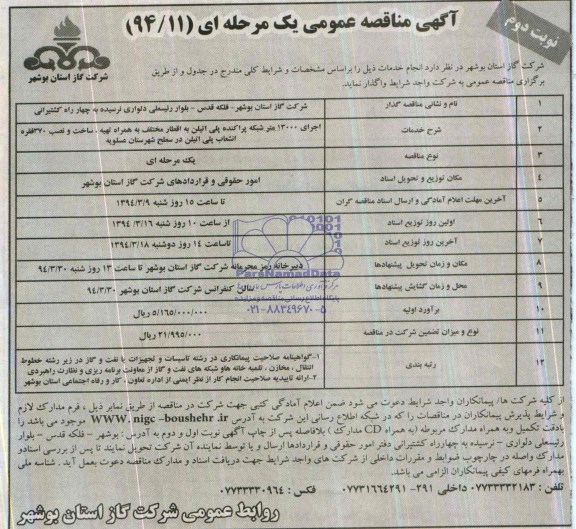 نوبت دوم
آگهی مناقصه عمومی یک مرحله ای (۹۴/۱۱)
شرکت گاز استان بوشهر
شرکت گاز استان بوشهر در نظر دارد انجام خدمات ذیل را براساس مشخصات و شرایط کلی مندرج در جدول و از طریق
برگزاری مناقصه عمومی به شرکت واجد شرایط واگذار نماید.
۱ نام و نشانی مناقصه گذار شرکت گاز استان بوشهر- فلکه قدس - بلوار رئیسعلی دلواری نرسیده به چهار راه کشتیرانی
۲ شرح خدمات اجرای ۱۳۰۰۰ متر شبکه پراکنده پلی اتیلن به اقطار مختلف به همراه تهیه ، ساخت و نصب ۳۷۰فقره
انشعاب پلی اتیلن در سطح شهرستان عسلویه
۳ نوع مناقصه یک مرحله ای
۴ مکان توزیع و تحویل اسناد امور حقوقی و قراردادهای شرکت گاز استان بوشهر
۵ آخرین مهلت اعلام آمادگی و ارسال اسناد مناقصه گران تا ساعت ۱۵ روز شنبه ۱۳۹۴/۳/۹
۶ اولین روز توزیع اسناد از ساعت ۱۰ روز شنبه ۱۳۹۴/۳/۱۶
۷ آخرین روز توزیع اسناد تاساعت ۱۴ روز دوشنبه ۱۳۹۴/۳/۱۸
۸ مکان و زمان تحویل پیشنهادها دبیرخانه رمز محرمانه شرکت گاز استان بوشهر تا ساعت ۱۳ روز شنبه ۹۴/۳/۳۰
۹ محل و زمان گشایش پیشنهادها سالن کنفرانس شرکت گاز استان بوشهر ۹۴/۳/۳۰
۱۰ برآورد اولیه ۵/۱۶۵/۰۰۰/۰۰۰ ریال
۱۱ نوع و میزان تضمین شرکت در مناقصه ۲۱/۹۹۵/۰۰۰ ریال
۱۲ رتبه بندی ۱-گواهینامه صلاحیت پیمانکاری در رشته تاسیسات و تجهیزات یا نفت و گاز در زیر رشته خطوط
انتقال ، مخازن ، تلمبه خانه هاو شبکه های نفت و گاز از معاونت برنامه ریزی و نظارت راهبردی
۲-ارائه تاییدیه صلاحیت انجام کار از نظر ایمنی از اداره تعاون ، کار و رفاه اجتماعی استان بوشهر
ParsNamadData
۰۲۱-۸۸۳۴۹۶۷۰-۵
از کلیه شرکت ها/ پیمانکاران واجد شرایط دعوت می شود ضمن اعلام آمادگی کتبی جهت شرکت در مناقصه از طریق نمابر ذیل ، فرم مدارک لازم
و شرایط پذیرش پیمانکاران در مناقصات را که در شبکه اطلاع رسانی این شرکت به آدرس WWW. nigc -boushehr .ir موجود می باشد را
بادقت تکمیل وبه همراه مدارک مربوطه (به همراه CD مدارک ) بلافاصله پس از چاپ آگهی نوبت اول و دوم به آدرس : بوشهر - فلکه قدس - بلوار
رئیسعلی دلواری - نرسیده به چهارراه کشتیرانی دفتر امور حقوقی و قراردادها ارسال و یا توسط نماینده آن شرکت تحویل نمایند تا پس از بررسی اسنادو
مدارک واصله در چارچوب ضوابط و مقررات داخلی از شرکت های واجد شرایط جهت دریافت اسناد و مدارک مناقصه دعوت بعمل آید . شناسه ملی
بهمراه فرمهای کیفی پیمانکاران الزامی می باشد.
تلفن : ۰۷۷۳۳۳۳۲۱۸۳ داخلی ۲۹۱- ۰۷۷۳۱۶۶۴۲۹۱ فکس : ۰۷۷۳۳۳۳۰۹۶۴
روابط عمومی شرکت گاز استان بوشهر